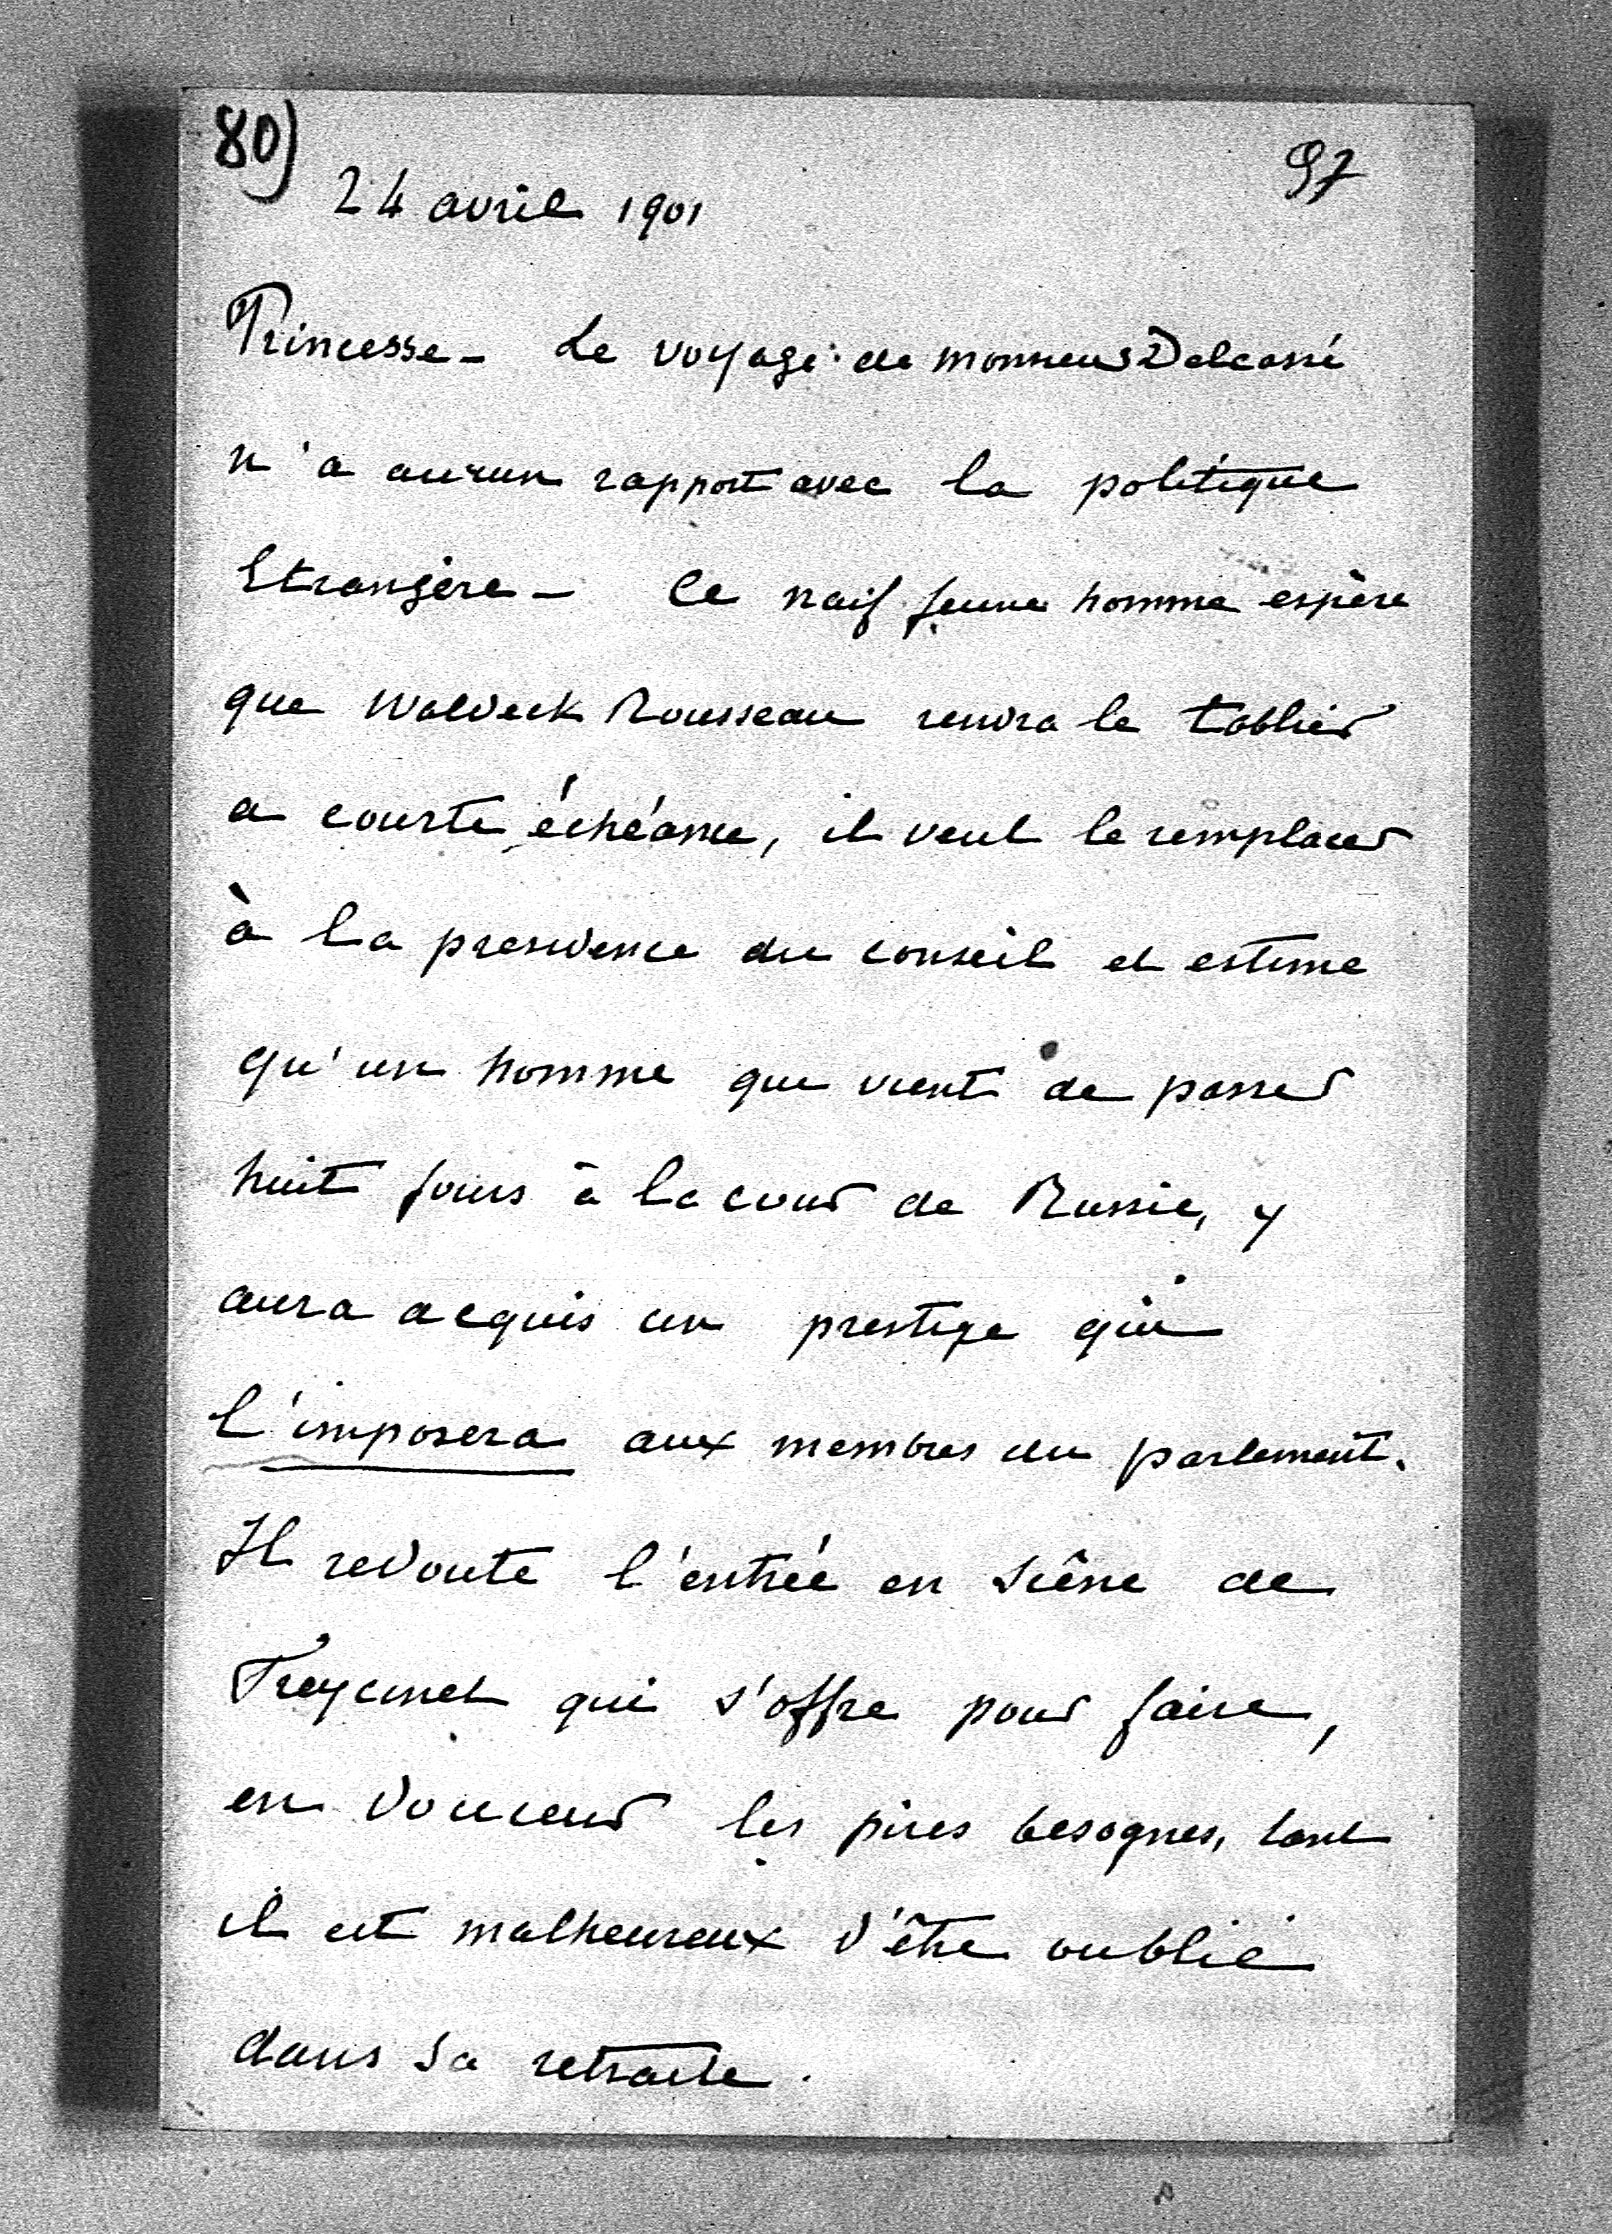 80)
97
24 avril 1901
Princesse - Le voyage de monsieur Delcassé
n'a aucun rapport avec la politique
Etrangère - Ce naif jeune homme espère
que Waldeck Rousseau rendra le tablier
a courte échéance, il veut le remplacer
à la presidence du conseil et estime
qu'un homme qui vient de passer
huit jours à la cour de Russie, y
aura acquis un prestige qui
l'imposera aux membres du parlement.
Il redoute l'entrée en scêne de
Freycinet qui s'offre pour faire,
en douceur les pires besognes, tant
il est malheureux d'être oublié
dans sa retraite.